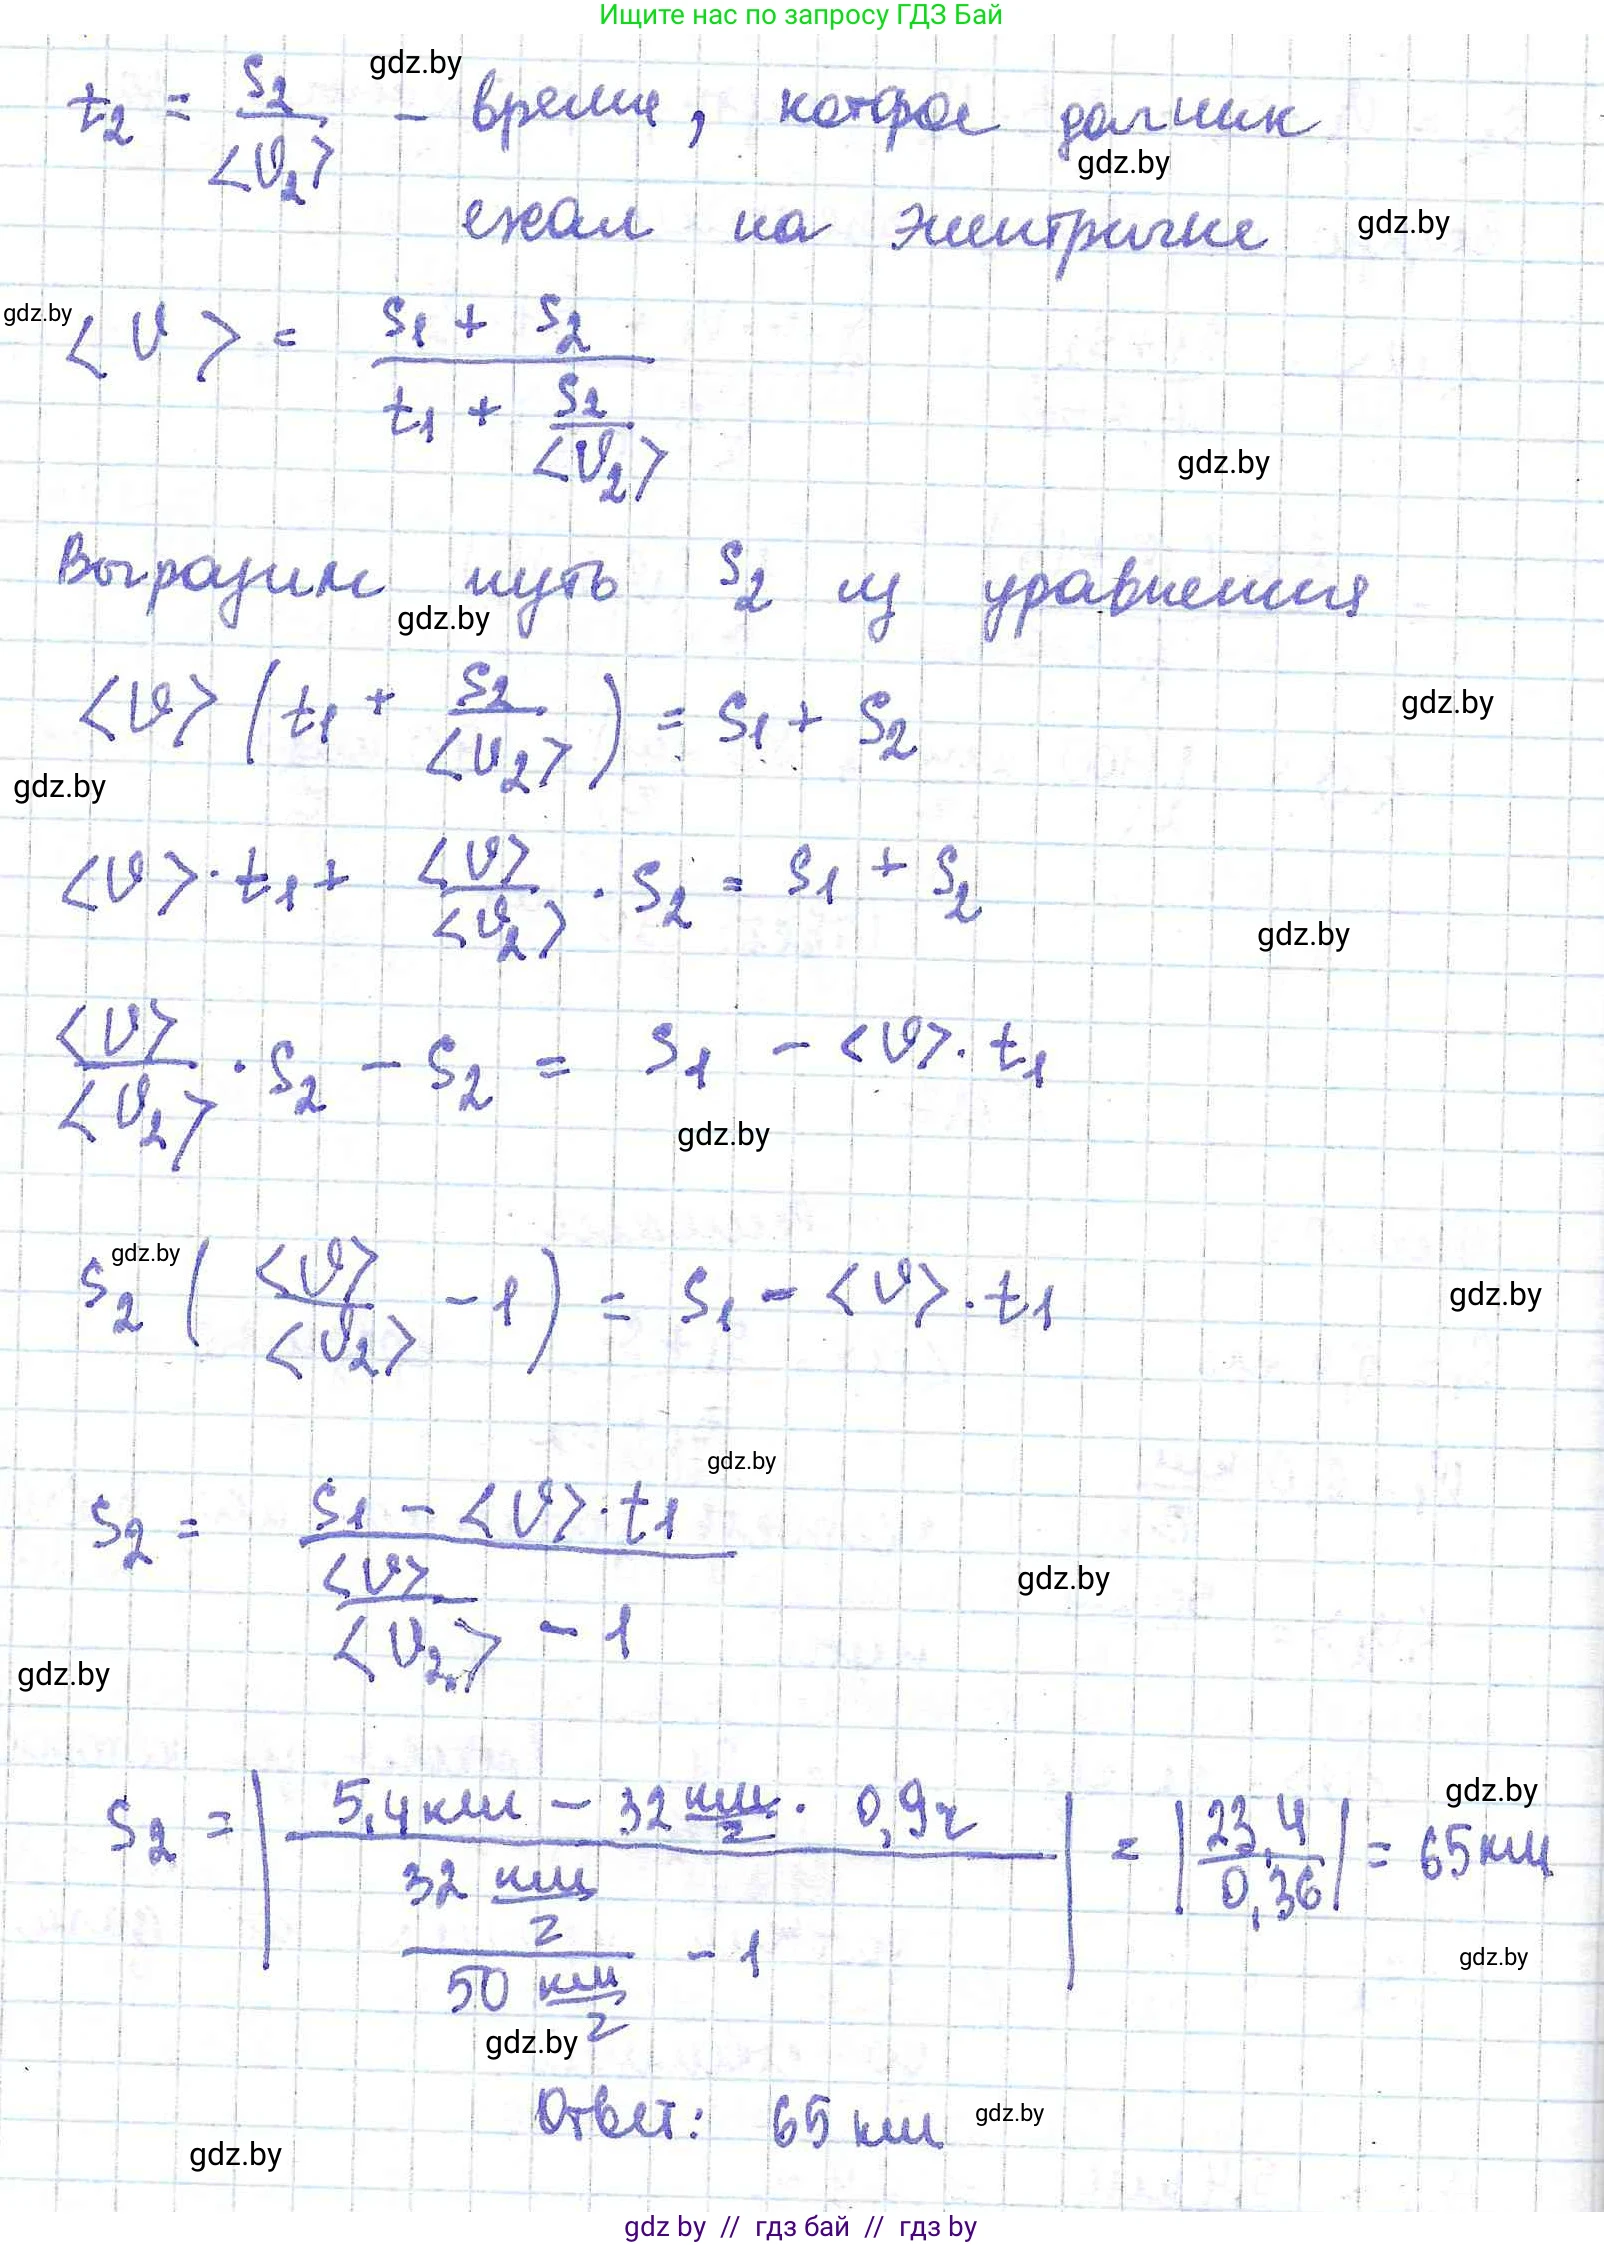 Ищите нас по запросу ГДЗ Бай
gdz.by
t₂ = s₂/<υ₂> - время, которое дачник
gdz.by
ехал на электричке gdz.by
gdz.by
<υ> = (s₁ + s₂)/(t₁ + s₂/<υ₂>)
gdz.by
Выразим путь s₂ из уравнения
gdz.by
<υ> (t₁ + s₂/<υ₂>) = s₁ + s₂ gdz.by
gdz.by
<υ> · t₁ + <υ>/<υ₂> · s₂ = s₁ + s₂
gdz.by
<υ>/<υ₂> · s₂ - s₂ = s₁ - <υ> · t₁
gdz.by
gdz.by
s₂ (<υ>/<υ₂> - 1) = s₁ - <υ> · t₁ gdz.by
gdz.by
s₂ = (s₁ - <υ> · t₁)/(<υ>/<υ₂> - 1)
gdz.by
gdz.by
gdz.by
s₂ = |(5,4 км - 32 км/ч · 0,9 ч)/(32 км/ч / 50 км/ч - 1)| = |23,4/0,36| = 65 км
gdz.by
gdz.by
Ответ: 65 км gdz.by
gdz.by
gdz by // гдз бай // гдз by